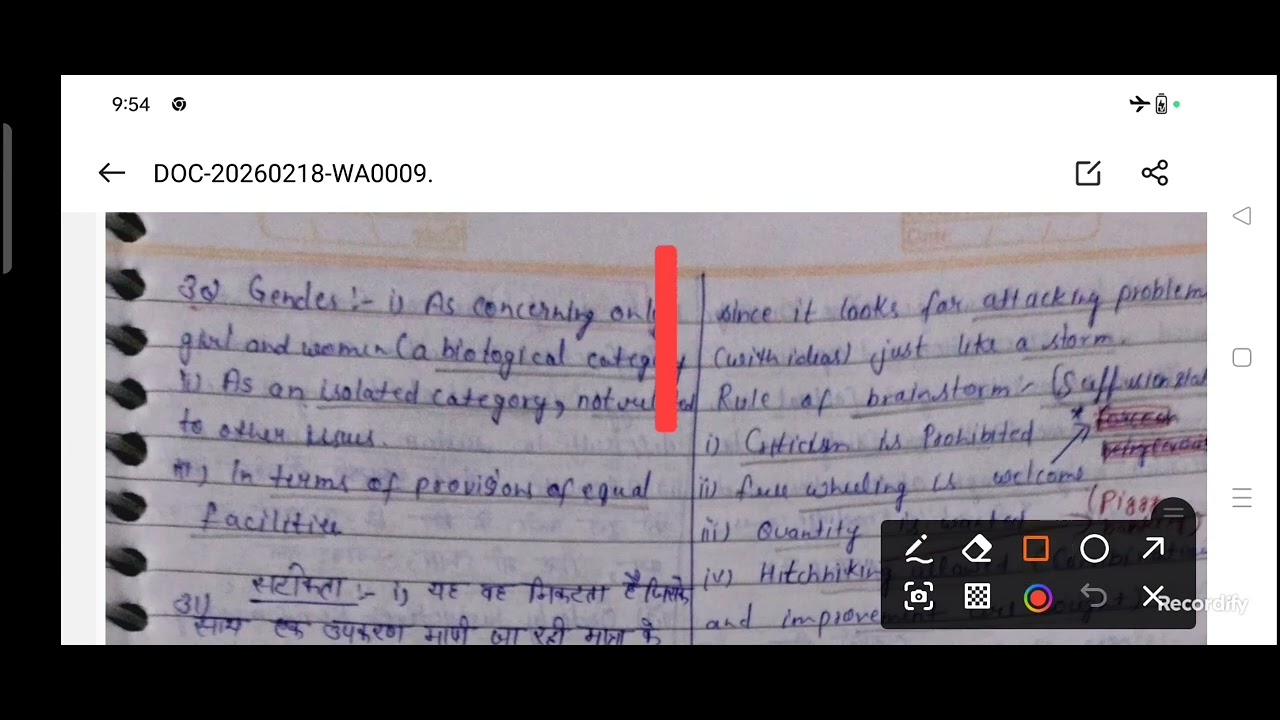 9:54
DOC-20260218-WA0009.
Date
30) Gender :- i) As concerning only
girl and women (a biological category
ii) As an isolated category, not related
to other issues.
iii) In terms of provisions of equal
facilities
31) सटीकता :- i) यह वह निकटता है जिसके
साथ एक उपकरण मापी जा रही मात्रा के
since it looks for attacking problem
(with ideas) just like a storm.
Rule of brainstorm :-
i) Criticism is Prohibited
ii) free wheeling is welcome
iii) Quantity is wanted
iv) Hitchhiking allowed
and improvement
Recordify